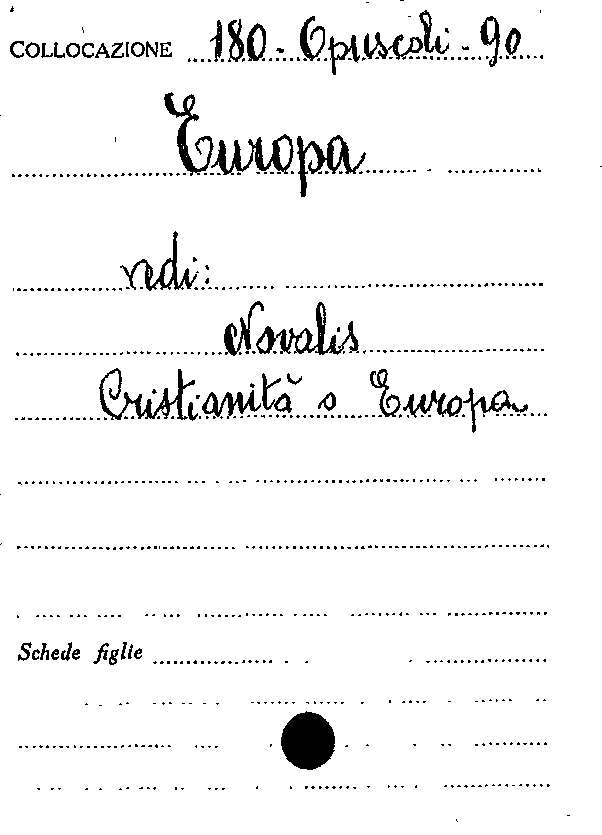 COLLOCAZIONE 180 - Opuscoli - 90
Europa
vedi:
Novalis
Cristianità o Europa
Schede figlie